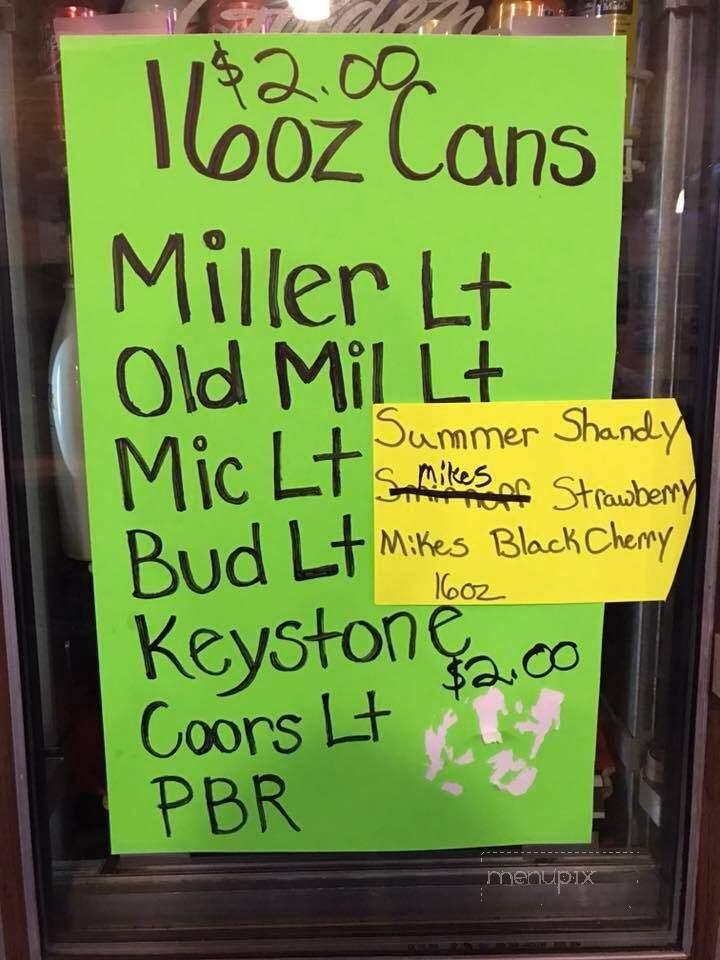 Garden
$2.00
16oz Cans
Miller Lt
Old Mil Lt
Mic Lt
Bud Lt
Keystone
$2.00
Coors Lt
PBR
Summer Shandy
Mikes
Smirnoff Strawberry
Mikes Black Cherry
16oz
menupix